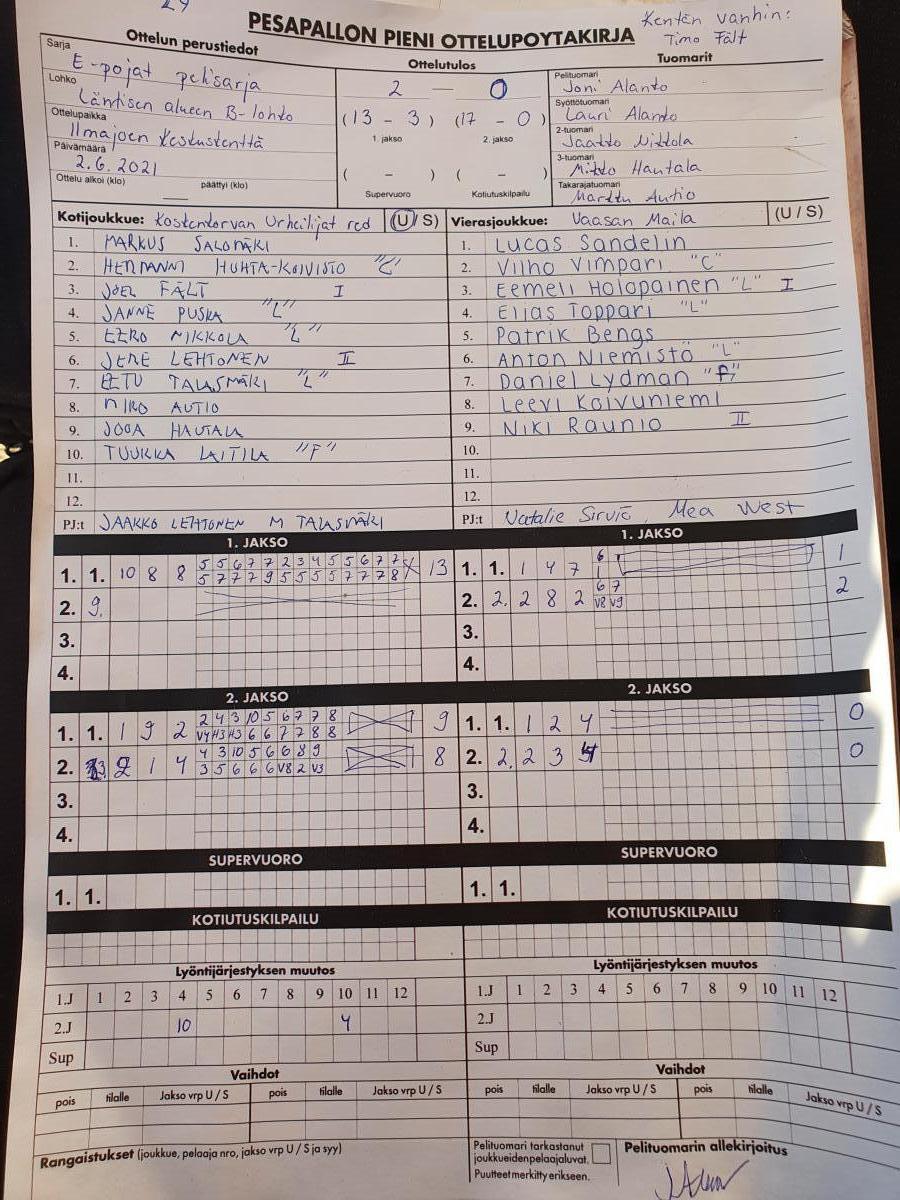 29
PESAPALLON PIENI OTTELUPOYTAKIRJA
Kentän vanhin:
Timo Fält
Ottelun perustiedot
Sarja
E-pojat pelisarja
Lohko
Läntisen alueen B-lohko
Ottelupaikka
Ilmajoen Keskuskenttä
Päivämäärä
2.6.2021
Ottelu alkoi (klo) päättyi (klo)
Ottelutulos
2 — 0
(13 - 3) (17 - 0)
1. jakso 2. jakso
( - ) ( - )
Supervuoro Kotiutuskilpailu
Tuomarit
Pelituomari
Joni Alanko
Syöttötuomari
Lauri Alanko
2-tuomari
Jaakko Nikkola
3-tuomari
Mikko Hautala
Takarajatuomari
Markku Autio
Kotijoukkue: Koskenkorvan Urheilijat red (U/S)
1. MARKUS SALOMÄKI
2. HERMANNI HUHTA-KOIVISTO "C"
3. JOEL FÄLT I
4. JANNE PUSKA "L"
5. EERO NIKKOLA "L"
6. JERE LEHTONEN II
7. EETU TALASMÄKI "L"
8. NIKO AUTIO
9. JOGA HAUTALA
10. TUUKKA LAITILA "F"
11.
12.
PJ:t JAAKKO LEHTONEN M TALASMÄKI
Vierasjoukkue: Vaasan Maila (U/S)
1. Lucas Sandelin
2. Vilho Vimpari "C"
3. Eemeli Holopainen "L" I
4. Elias Toppari "L"
5. Patrik Bengs
6. Anton Niemistö "L"
7. Daniel Lydman "F"
8. Leevi Koivuniemi
9. Niki Raunio II
10.
11.
12.
PJ:t Natalie Sirviö, Mea West
1. JAKSO
1. 1. 10 8 8 5 5 6 7 7 2 3 4 5 5 6 7 7 13
5 7 7 7 9 5 5 5 5 7 7 7 8
2. 9.
3.
4.
1. JAKSO
1. 1. 1 4 7 6 1
1
2. 2. 2 8 2 6 7 2
V8 V9
3.
4.
2. JAKSO
1. 1. 1 9 2 2 4 3 10 5 6 7 7 8 9
V4 H3 H3 6 6 7 7 8 8
2. 2 1 4 4 3 10 5 6 6 8 9 8
3 5 6 6 6 V8 2 V3
3.
4.
2. JAKSO
1. 1. 1 2 4 0
2. 2. 2 3 0
3.
4.
SUPERVUORO
1. 1.
SUPERVUORO
1. 1.
KOTIUTUSKILPAILU
KOTIUTUSKILPAILU
Lyöntijärjestyksen muutos
1.J 1 2 3 4 5 6 7 8 9 10 11 12
2.J 10 4
Sup
Lyöntijärjestyksen muutos
1.J 1 2 3 4 5 6 7 8 9 10 11 12
2.J
Sup
Vaihdot
pois tilalle Jakso vrp U / S pois tilalle Jakso vrp U / S
Vaihdot
pois tilalle Jakso vrp U / S pois tilalle Jakso vrp U / S
Rangaistukset (joukkue, pelaaja nro, jakso vrp U / S ja syy)
Pelituomari tarkastanut
joukkueiden pelaajaluvat.
Puutteet merkitty erikseen.
Pelituomarin allekirjoitus